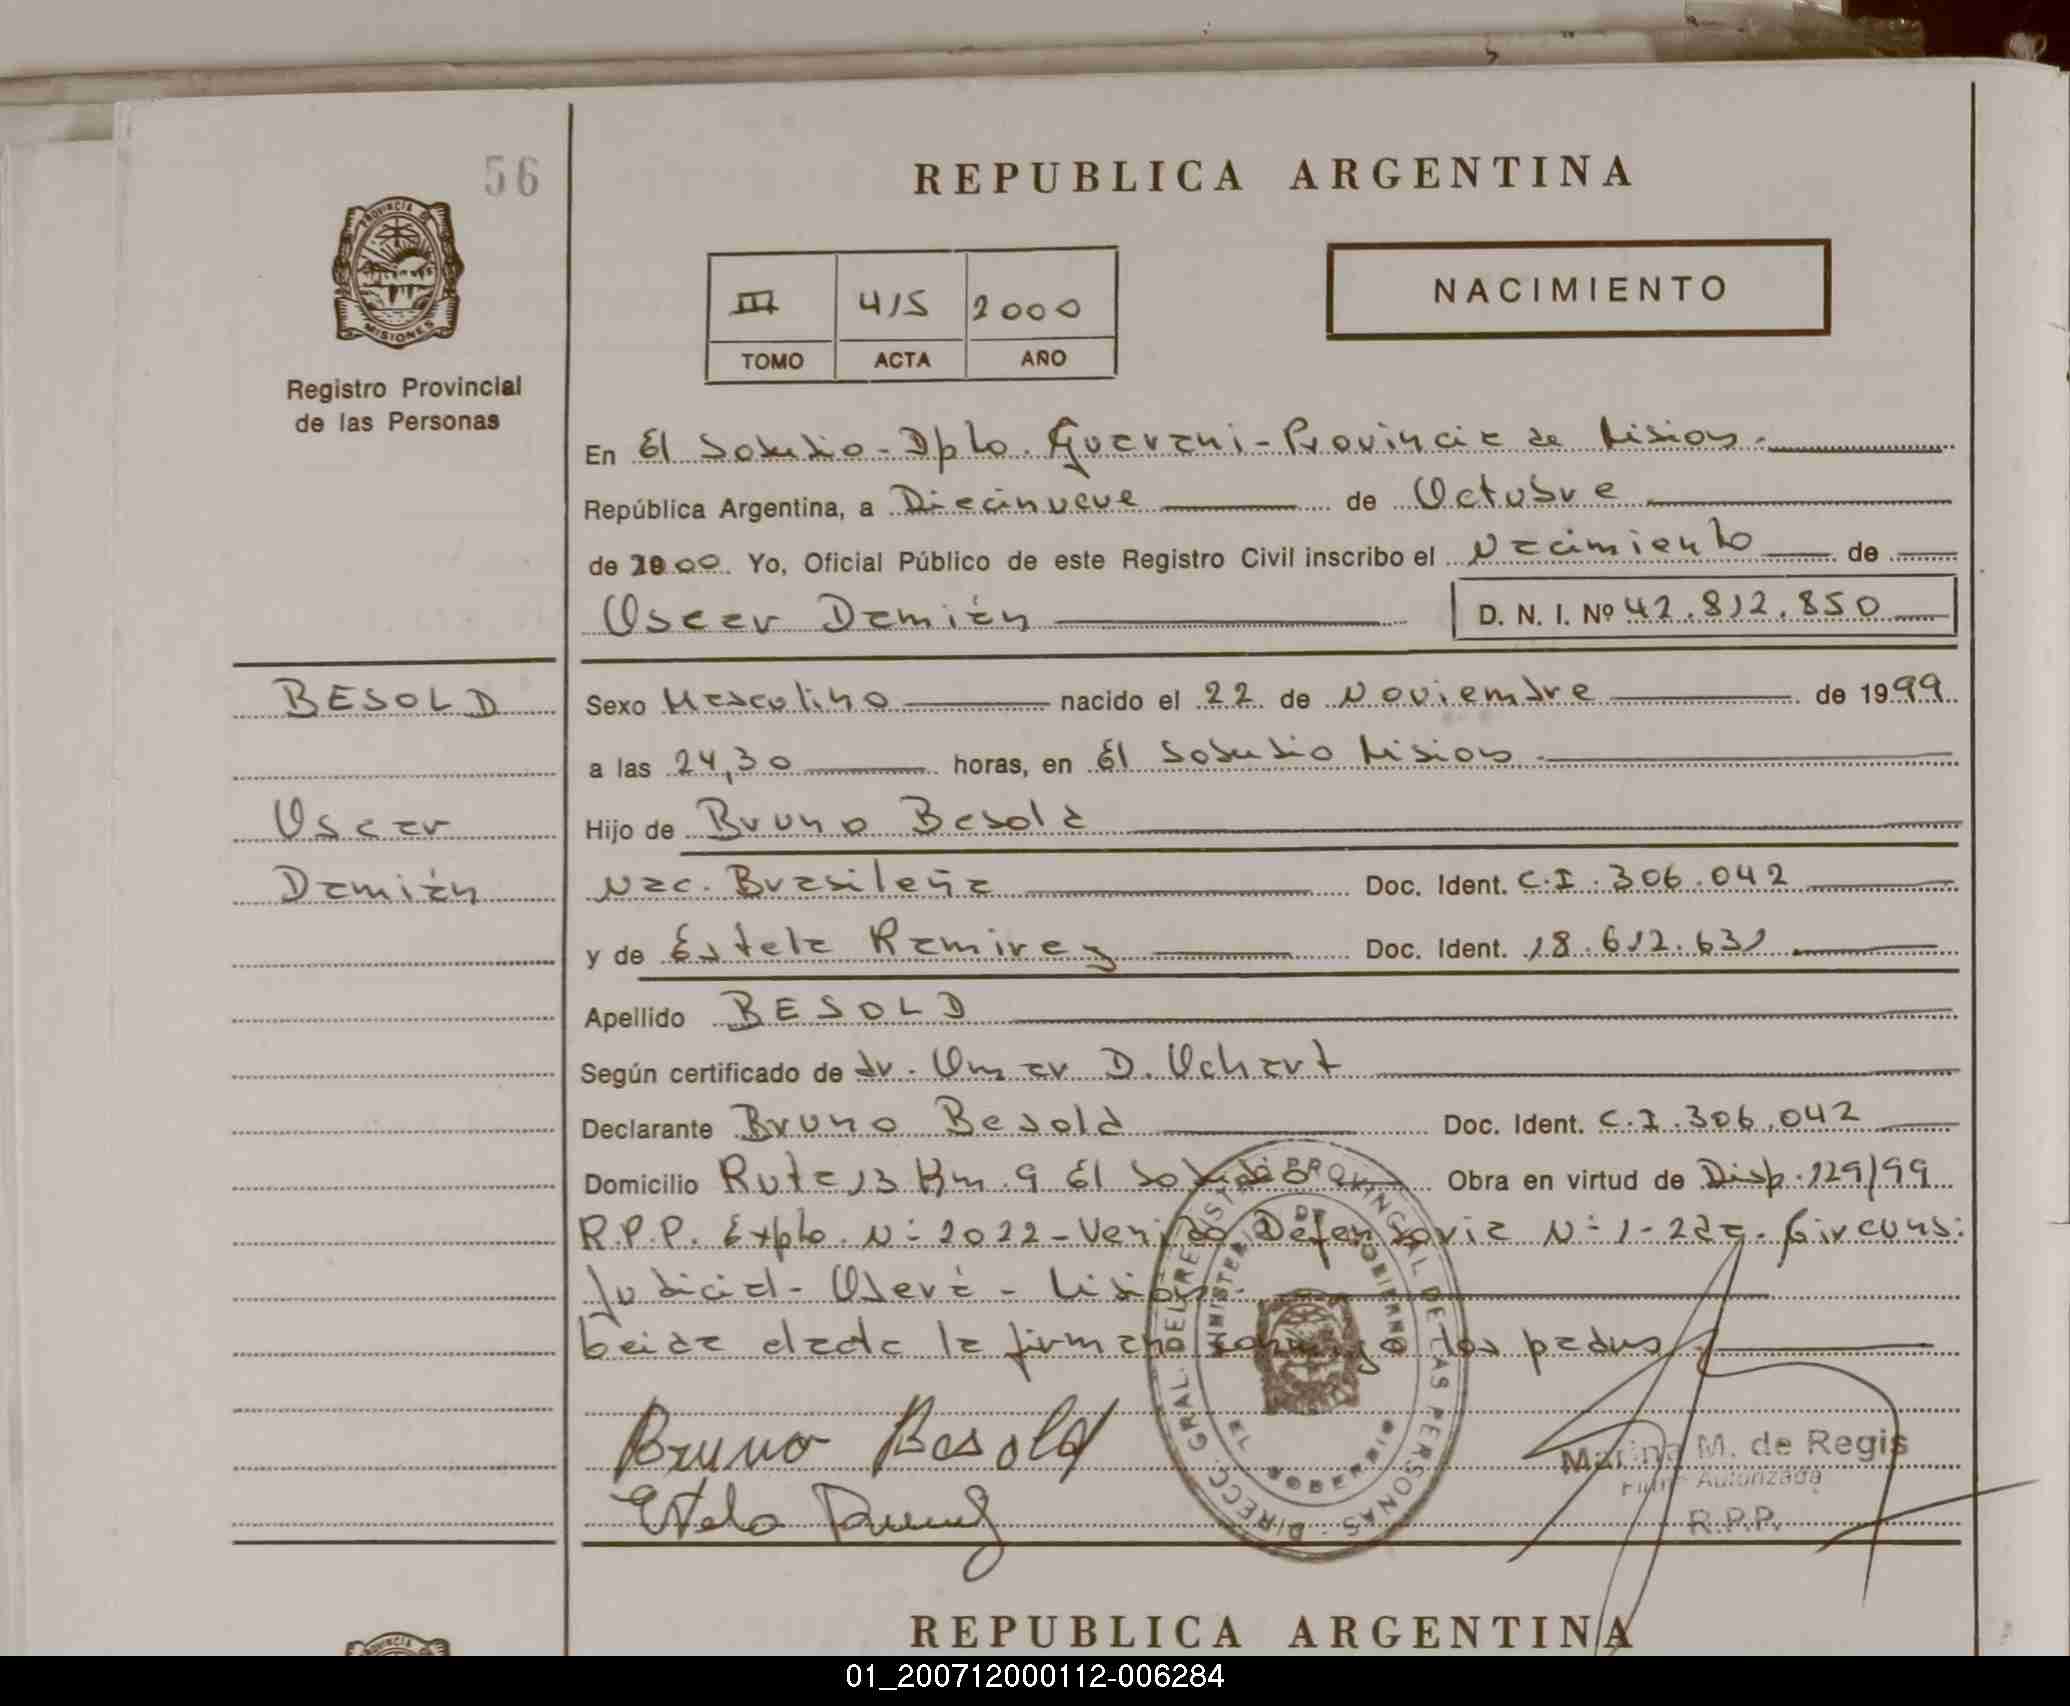 56
REPUBLICA ARGENTINA
PROVINCIA DE
MISIONES
Registro Provincial
de las Personas
III 415 2000
TOMO ACTA AÑO
NACIMIENTO
En El Soberbio - Dpto. Guarani - Provincia de Misiones.
República Argentina, a Diecinueve de Octubre
de 2000. Yo, Oficial Público de este Registro Civil inscribo el Nacimiento de
Oscar Damián D. N. I. Nº 42.812.850
BESOLD
Oscar
Damián
Sexo Masculino nacido el 22 de Noviembre de 1999
a las 24,30 horas, en El Soberbio Misiones.
Hijo de Bruno Besold
Nac. Brasileña Doc. Ident. C.I. 306.042
y de Estela Ramirez Doc. Ident. 18.612.631
Apellido BESOLD
Según certificado de Dr. Omar D. Ochart
Declarante Bruno Besold Doc. Ident. C.I. 306.042
Domicilio Ruta 13 Km. 9 El Soberbio Obra en virtud de Disp. 129/99
R.P.P. Expto. Nº 2022 - Venido Defensoria Nº 1 - 2da. Circuns.
Judicial - Oberá - Misiones.
Leida el acta la firman conmigo los padres.
DIRECC. GRAL. DEL REGISTRO PROVINCIAL DE LAS PERSONAS
MINISTERIO DE GOBIERNO
EL SOBERBIO
Bruno Besold
Estela Ramirez
Marina M. de Regis
Firma Autorizada
R.P.P.
REPUBLICA ARGENTINA
PROVINCIA DE
01_200712000112-006284